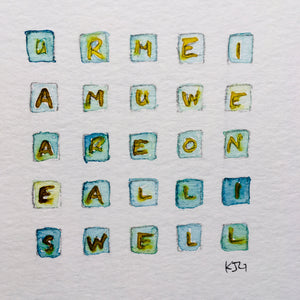 U R H E I
A M U W E
A R E O N
E A L L I
S W E L L
KJH